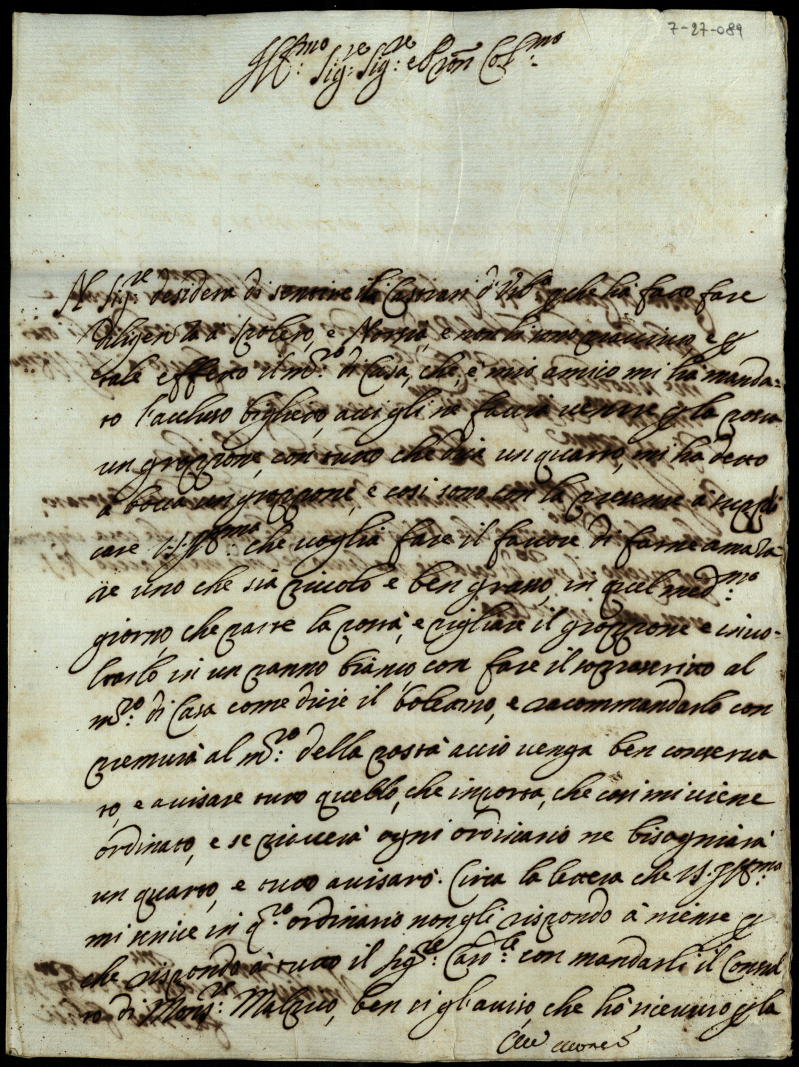 7-27-089
Ill:mo Sig:re Sig:re e Pron Col:mo
N. Sig:re desidera di sentire li Castrati d' che hà fatto fare
diligenza a Spoleto, e Norcia, e non li sono piaciuto e p
tale effetto il m:ro di Casa, che, è mio amico mi hà manda-
to l'accluso biglietto, acciò gli ne faccia venire p la posta
un groppone, con tutto che dica un quarto, mi ha detto
a bocca un groppone, e così sono con la presente a suppli
care V.S. Ill:ma che voglia fare il favore di farne amaza
re uno che sia piccolo e ben grasso, in quel med:mo
giorno, che parte la posta, e pigliare il groppone e invol-
tarlo in un panno bianco con fare il soprascritto al
m:ro di Casa come dice il bolettino, e racommandarlo con
premura al m:ro della posta acciò venga ben conserva
to, e avisare tutto quello, che importa, che così mi viene
ordinato, e se piacerà ogni ordinario ne bisogniarà
un quarto, e tutto avisarò. Circa la lettera che V.S. Ill:ma
mi scrive in q:to ordinario non gli rispondo à niente p
che rispondo à tutto il Sig:re Card:le con mandarli il Consul
to di Mons:re Malizio, ben si gl'aviso che hò ricevuto p la